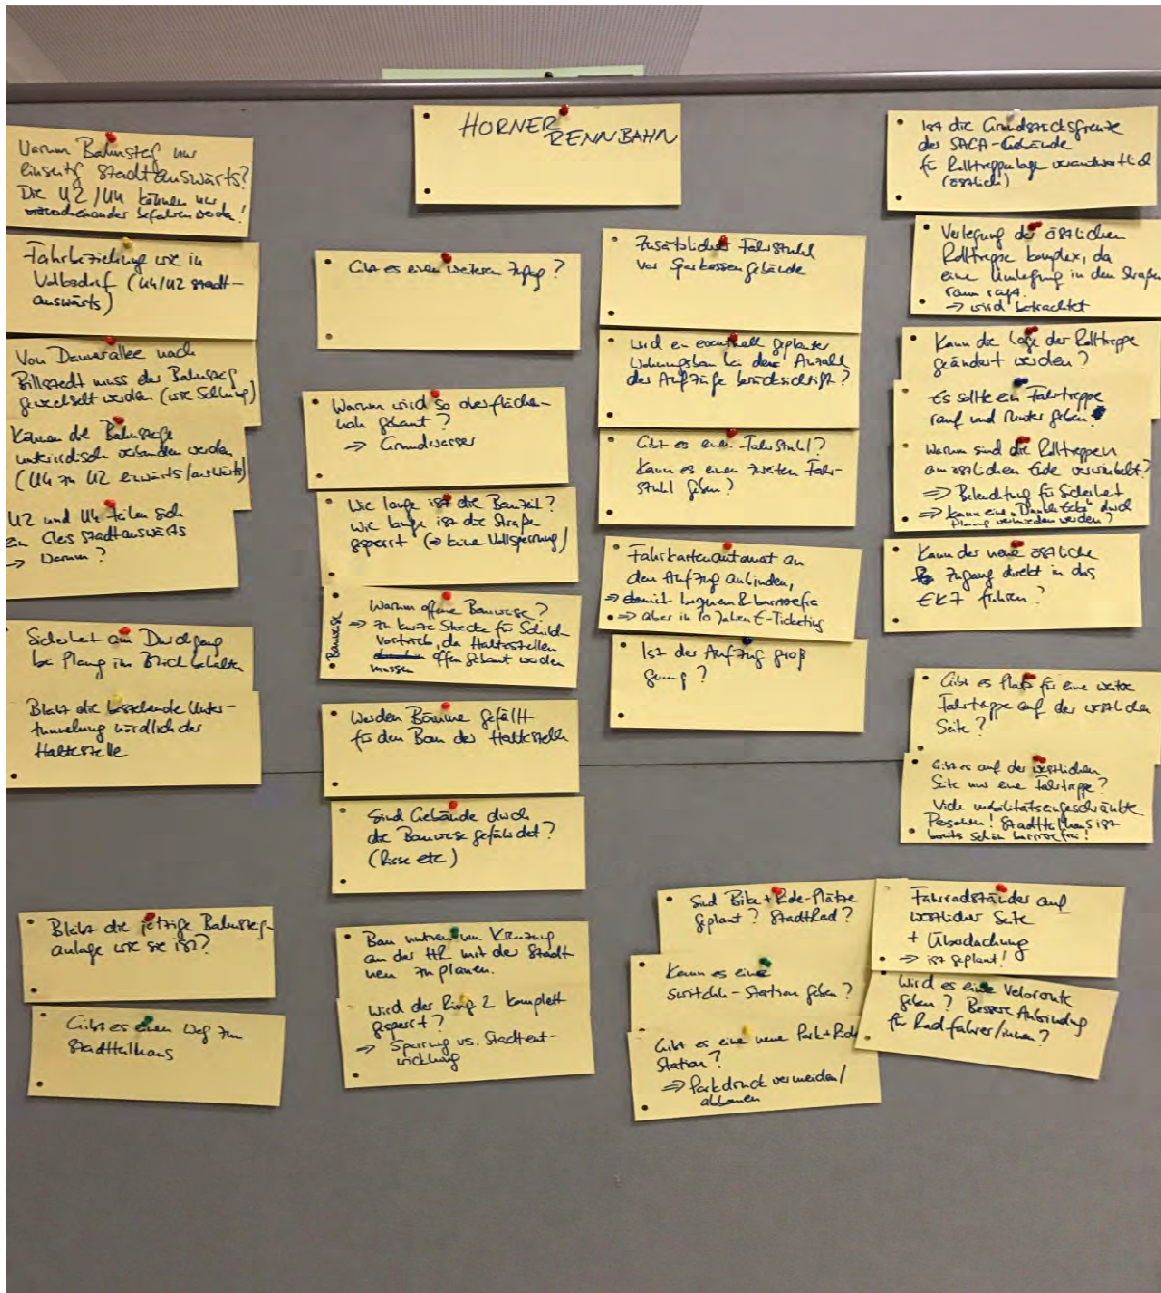 HORNER
RENNBAHN
Warum Bahnsteig nur
einseitig stadtauswärts?
Die U2/U4 können nur
nacheinander befahren werden!
Fahrbeziehung wie in
Volksdorf (U4/U2 stadt-
auswärts)
Von Dannerallee nach
Billstedt muss der Bahnsteig
gewechselt werden (wie Schlump)
Können die Bahnsteige
unterirdisch verbunden werden
(U4 zu U2 einwärts/auswärts)
U2 und U4 teilen sich
ein Gleis stadtauswärts
→ Warum?
Sicherheit am Durchgang
bei Planung im Blick behalten
Bleibt die bestehende Unter-
tunnelung nördlich der
Haltestelle
Bleibt die jetzige Bahnsteig-
anlage wie sie ist?
Gibt es einen Weg zum
Stadtteilhaus
Gibt es einen weiteren Zugang?
Warum wird so oberflächen-
nah gebaut?
→ Grundwasser
Wie lange ist die Bauzeit?
Wie lange ist die Straße
gesperrt (→ keine Vollsperrung)
Bauweise
Warum offene Bauweise?
→ zu kurze Strecke für Schild-
vortrieb, da Haltestellen
offen gebaut werden
müssen
Werden Bäume gefällt
für den Bau der Haltestelle
Sind Gebäude durch
die Bauweise gefährdet?
(Risse etc)
Bau nutzen um Kreuzung
an der HR mit der Stadt
neu zu planen.
Wird der Ring 2 komplett
gesperrt?
→ Sperrung vs. Stadtent-
wicklung
Zusätzlicher Fahrstuhl
vor Sparkassengebäude
Wird ein eventuell geplanter
Wohnungsbau bei der Anzahl
der Aufzüge berücksichtigt?
Gibt es einen Fahrstuhl?
Kann es einen zweiten Fahr-
stuhl geben?
Fahrkartenautomat an
den Aufzug anbinden,
→ damit bequem & barrierefrei
→ aber in 10 Jahren E-Ticketing
Ist der Aufzug groß
genug?
Sind Bike+Ride-Plätze
geplant? StadtRad?
Kann es eine
switchh-Station geben?
Gibt es eine neue Park+Ride
Station?
⇒ Parkdruck vermeiden/
abbauen
Ist die Grundstücksgrenze
der SAGA-Gebäude
für Rolltreppenlage verantwortlich
(östlich)
Verlegung der östlichen
Rolltreppe komplex, da
eine Umlegung in den Straßen
raum ragt.
→ wird betrachtet
Kann die Lage der Rolltreppe
geändert werden?
Es sollte ein Fahrtreppe
rauf und runter geben.
Warum sind die Rolltreppen
am östlichen Ende verwinkelt?
⇒ Beleuchtung für Sicherheit
⇒ Kann eine "Dunkle Ecke" durch
Planung vermieden werden?
Kann der neue östliche
Zugang direkt in das
EKZ führen?
Gibt es Platz für eine weitere
Fahrtreppe auf der westlichen
Seite?
Gibt es auf der westlichen
Seite nur eine Fahrtreppe?
Viele mobilitätseingeschränkte
Personen! Stadtteilhaus ist
bereits schon barrierefrei!
Fahrradständer auf
westlicher Seite
+ Überdachung
→ ist geplant!
Wird es eine Veloroute
geben? Bessere Anbindung
für Radfahrer/innen?